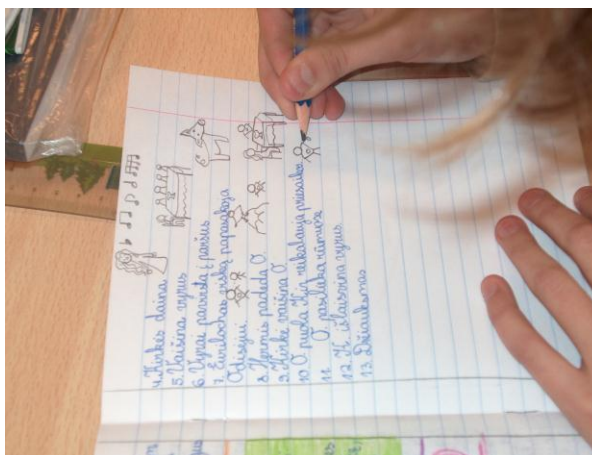 4. Kirkės daina
5. Vaišina vyrus
6. Vyrai pavirsta į paršus
7. Eurilochas viską papasakoja
Odisėjui
8. Hermis padeda O
9. Kirkė vaišina O
10 O puola Kir reikalauja priesaikos
11 O pasilieka rūmuose
12. K išlaisvina vyrus
13. Džiauksmas